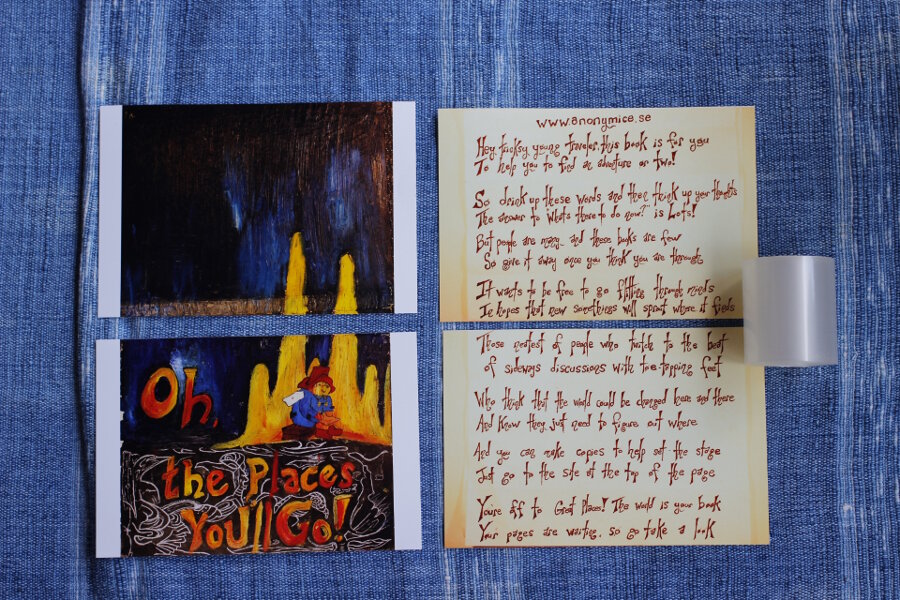 Oh,
the Places
You'll Go!
www.anonymice.se
Hey tricksy young traveler, this book is for you
To help you to find an adventure or two!
So drink up these words and then think up your thoughts
The answer to "Whats there to do now?" is Lots!
But people are many and these books are few
So give it away once you think you are through
It wants to be free to go flitting through minds
In hopes that new somethings will sprout where it finds
Those neatest of people who twitch to the beat
of sideways discussions with toe-tapping feet
Who think that the world could be changed here and there
And know they just need to figure out where
And you can make copies to help set the stage
Just go to the site at the top of the page
You're off to Great Places! The world is your book
Your pages are waiting, so go take a look